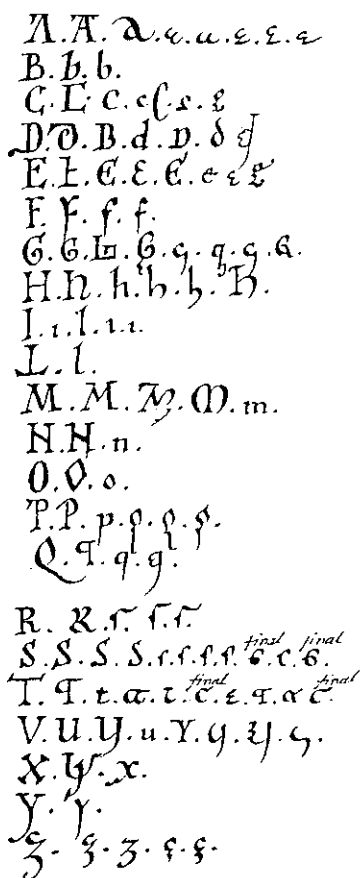 A. A. a. a. u. ε. ε. e
B. b. b.
C. C. C. c C s. e
D. D. B. d. D. δ d
E. E. E. E. E. e ε E
F. F. f. f.
G. G. G. G. g. q. g. G.
H. H. h. h. h. H.
I. ı. l. ı. ı.
L. l.
M. M. M. M. m.
N. N. n.
O. O. o.
P. P. p. p. p. p.
Q. q. q. q.
R. R. r. r. r.
S. S. S. S. s. s. s. s. final s. s. final s.
T. T. t. t. t. final t. t. t. t final t.
V. U. U. u. V. y. y. y.
X. X. x.
Y. Y.
Z. z. z. z. z.